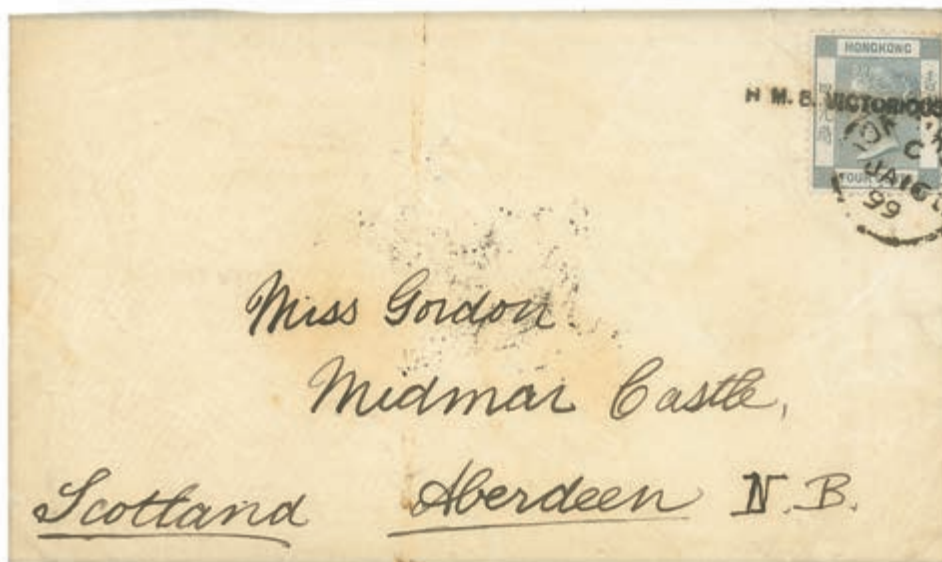 HONGKONG
H M. S. VICTORIOUS
C
JA 16
99
Miss Gordon
Midmar Castle,
Scotland Aberdeen N.B.